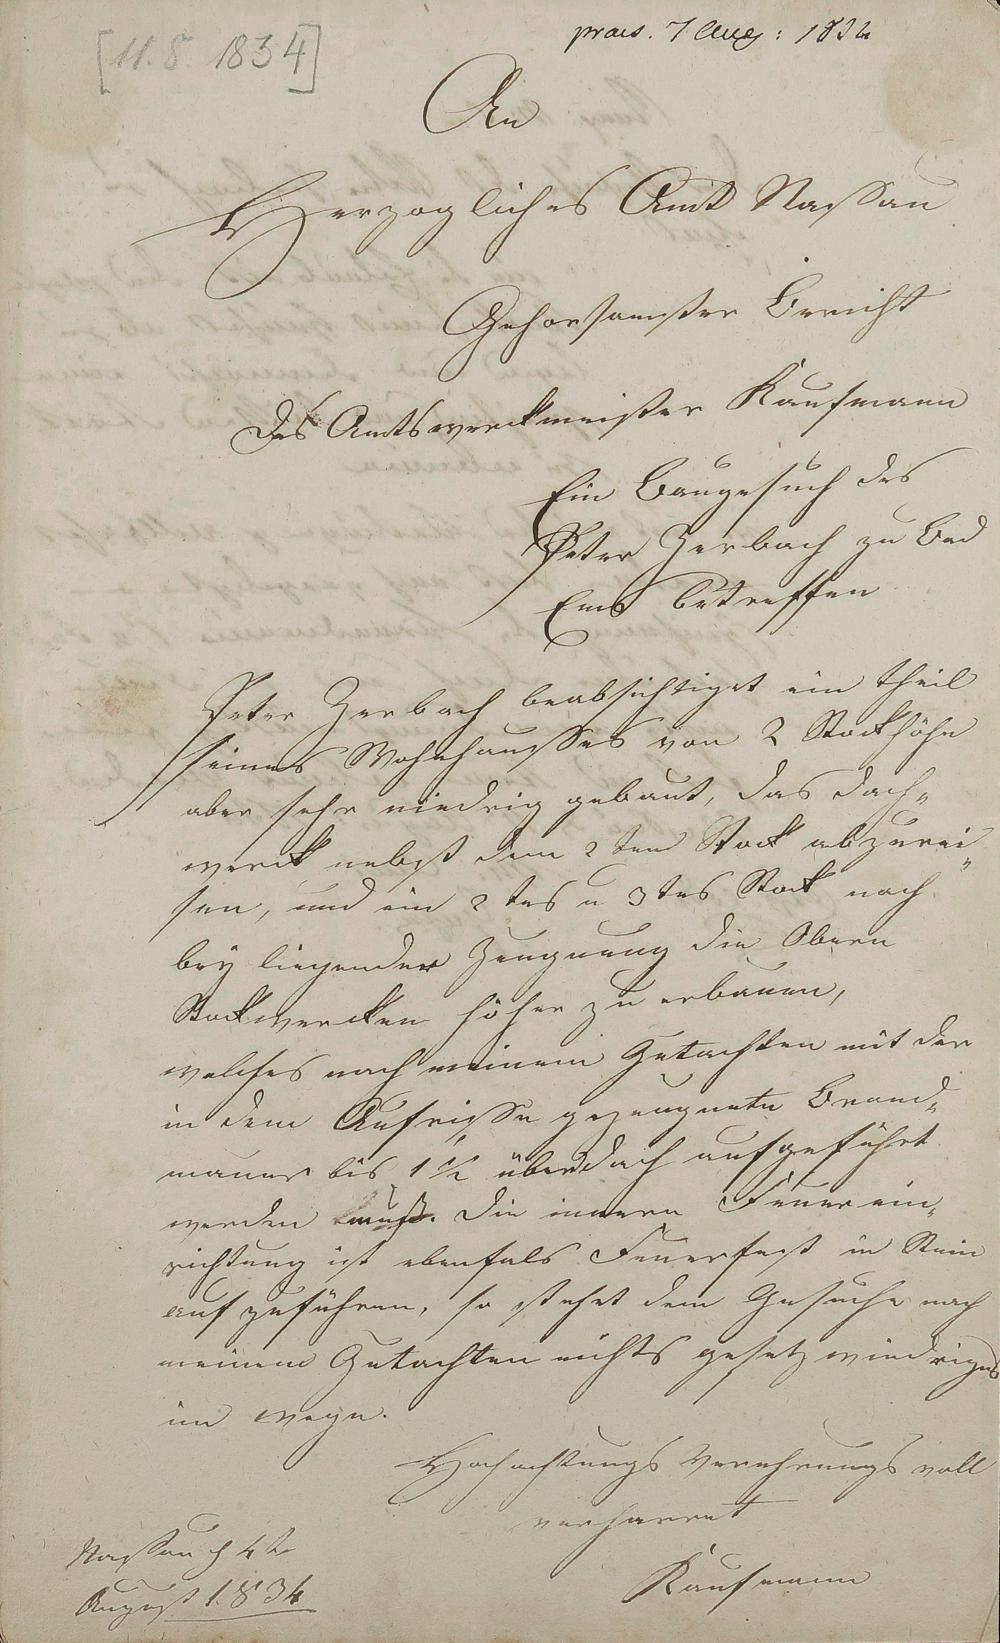 [11. 8. 1834]
praes. 7 Aug: 1834
An
Herzogliches Amt Nassau
Gehorsamster Bericht
Des Amtswerckmeister Kaufmann
Ein Baugesuch des
Peter Zerbach zu Bad
Ems betreffen
Peter Zerbach beabsichtiget ein theil
seines Wohnhausses von 2 Stockhöhe
aber sehr niedrig gebaut, das dach„
werck nebst dem 2ten Stock abzurei„
sen, und ein 2tes u 3tes Stock nach
bey liegender Zeugnung die Obern
Stockwercken höher zu erbauen,
welches nach meinem Gutachten mit der
in dem Aufrisse gezeugnete Brand„
mauer bis 1 1/2 überdach aufgeführt
werden muß. Die innern Feuerein„
richtung ist ebenfals Feuerfest in Stein
auf zuführen, so stehet dem Gesuche nach
meinem Gutachten nichts gesetzwiedriges
im wege.
Hochachtungs Verehrungs voll
verharret
Kaufmann
Nassau d 4te
August 1834